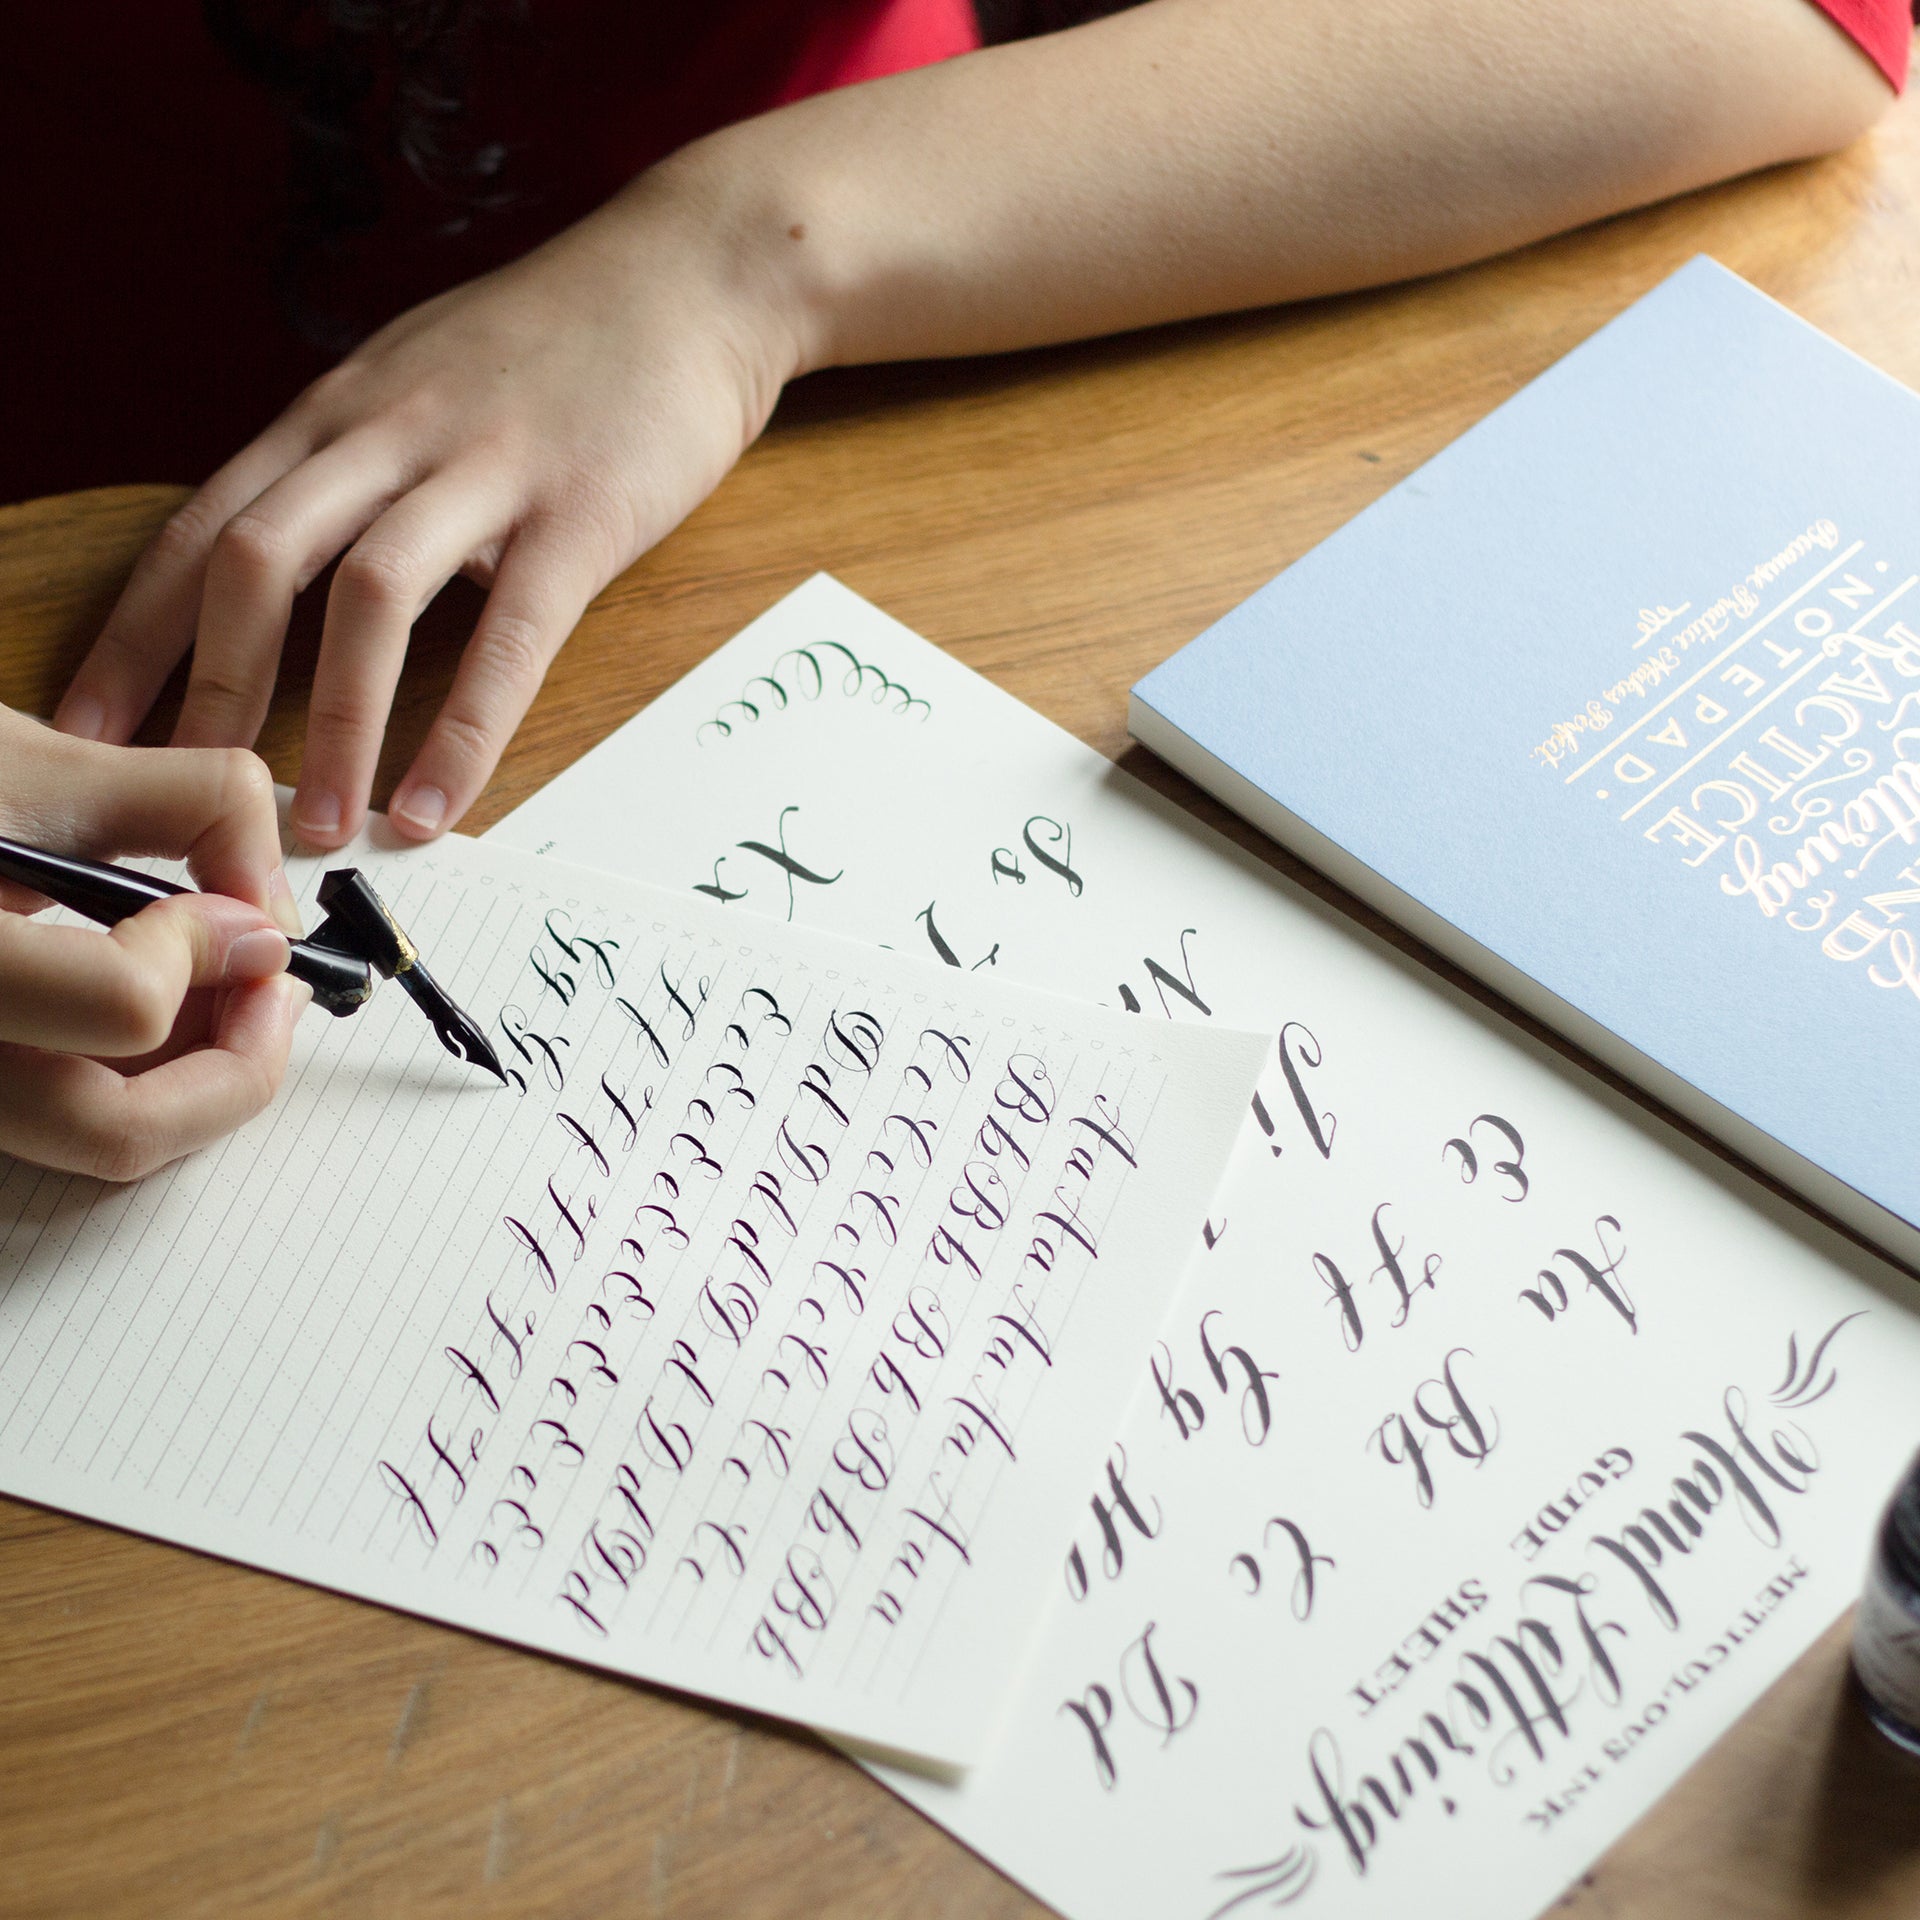 METICULOUS INK
Hand Lettering
GUIDE SHEET
Aa Bb Cc Dd
Ee Ff Gg
Ii
Ss
Xx
Aa Aa Aa Aa Aa a
Bb Bb Bb Bb Bb
Cc Cc Cc Cc Cc Cc Cc
Dd Dd Dd Dd Dd
Ee Ee Ee Ee Ee Ee Ee Ee
Ff Ff Ff Ff Ff
Gg Gg
PRACTICE
· NOTEPAD ·
Because Practice Makes Perfect.